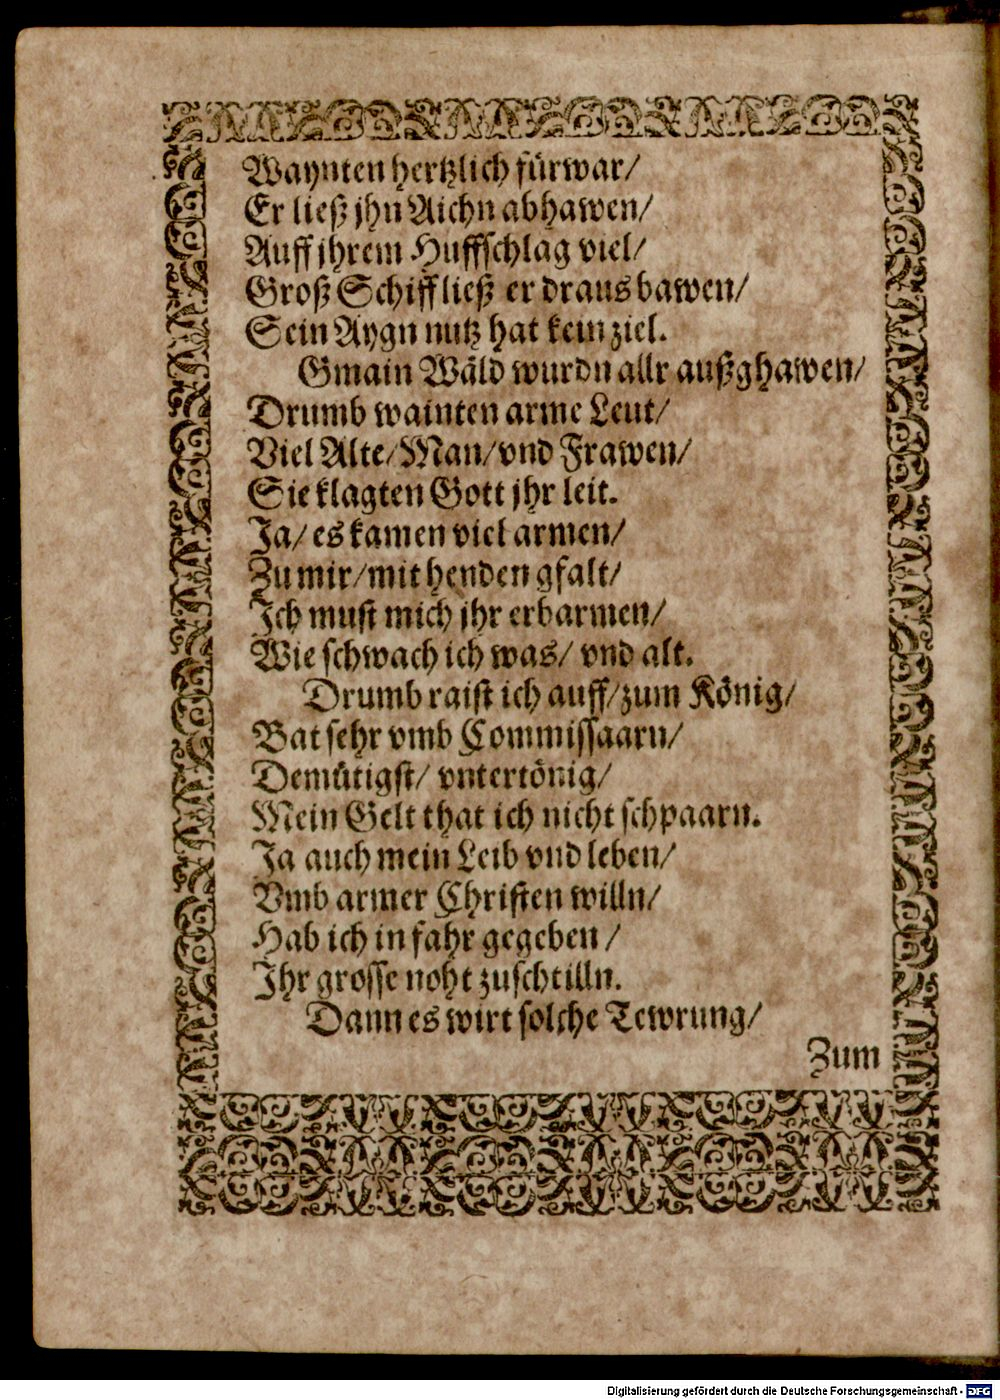 Waynten hertzlich fürwar/
Er ließ jhn Aichn abhawen/
Auff jhrem Huffschlag viel/
Groß Schiff ließ er draus bawen/
Sein Aygn nutz hat kein ziel.
Gmain Wäld wurdn allr außghawen/
Drumb wainten arme Leut/
Viel Alte/ Man/ vnd Frawen/
Sie klagten Gott jhr leit.
Ja/ es kamen viel armen/
Zu mir/ mit henden gfalt/
Ich must mich jhr erbarmen/
Wie schwach ich was/ vnd alt.
Drumb raist ich auff/ zum König/
Bat sehr vmb Commissaarn/
Demütigst/ vntertönig/
Mein Gelt that ich nicht schpaarn.
Ja auch mein Leib vnd leben/
Vmb armer Christen willn/
Hab ich in fahr gegeben/
Ihr grosse noht zuschtilln.
Dann es wirt solche Tewrung/
Zum
Digitalisierung gefördert durch die Deutsche Forschungsgemeinschaft - DFG